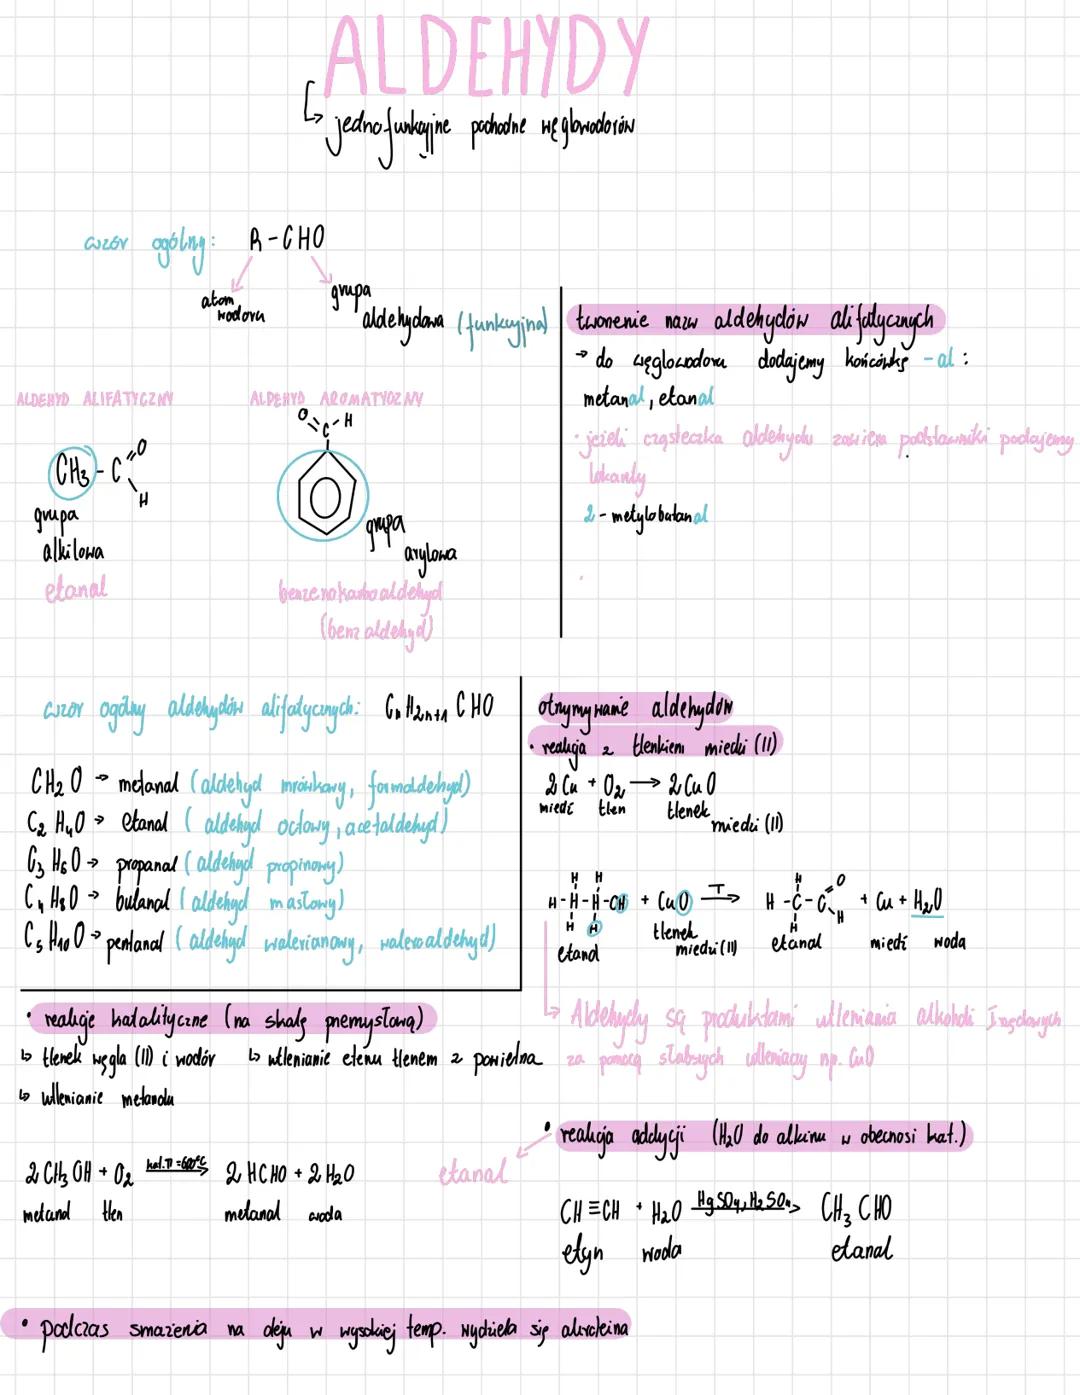 ALDEHYDY
jednofunkcyjne pochodne węglowodorów
wzór ogólny: R-CHO
atom wodoru
grupa aldehydowa (funkcyjna)
ALDEHYD ALIFATYCZNY
CH3-C
O
H
grupa alkilowa
etanal
ALDEHYD AROMATYCZNY
O
C-H
grupa arylowa
benzenokarboaldehyd
(benzaldehyd)
tworzenie nazw aldehydów alifatycznych
→ do węglowodoru dodajemy końcówkę -al:
metanal, etanal
• jeżeli cząsteczka aldehydu zawiera podstawniki podajemy
lokanty
2-metylobutanal
wzór ogólny aldehydów alifatycznych: CnH2n+1 CHO
CH2O → metanal (aldehyd mrówkowy, formaldehyd)
C2H4O → etanal (aldehyd octowy, acetaldehyd)
C3H6O → propanal (aldehyd propinowy)
C4H8O → butanal (aldehyd masłowy)
C5H10O → pentanal (aldehyd walerianowy, waleroaldehyd)
otrzymywanie aldehydów
• reakcja z tlenkiem miedzi (II)
2Cu + O2 → 2CuO
miedź tlen tlenek miedzi (II)
H H
H-H-H-OH + CuO T→ H-C-C + Cu + H2O
H H
H
O
H
H
etanol tlenek miedzi (II) etanal miedź woda
Aldehydy są produktami utleniania alkoholi Irzędowych
za pomocą słabszych utleniaczy np. CuO
• reakcje katalityczne (na skalę przemysłową)
↳ tlenek węgla (II) i wodór ↳ utlenianie etenu tlenem z powietrza
↳ utlenianie metanolu
2CH3OH + O2 kat. T=600°C→ 2HCHO + 2H2O
metanol tlen metanal woda
• reakcja addycji (H2O do alkinu w obecnosi kat.)
etanal
CH≡CH + H2O HgSO4, H2SO4→ CH3CHO
etyn woda etanal
• podczas smażenia na oleju w wysokiej temp. wydziela się akroleina